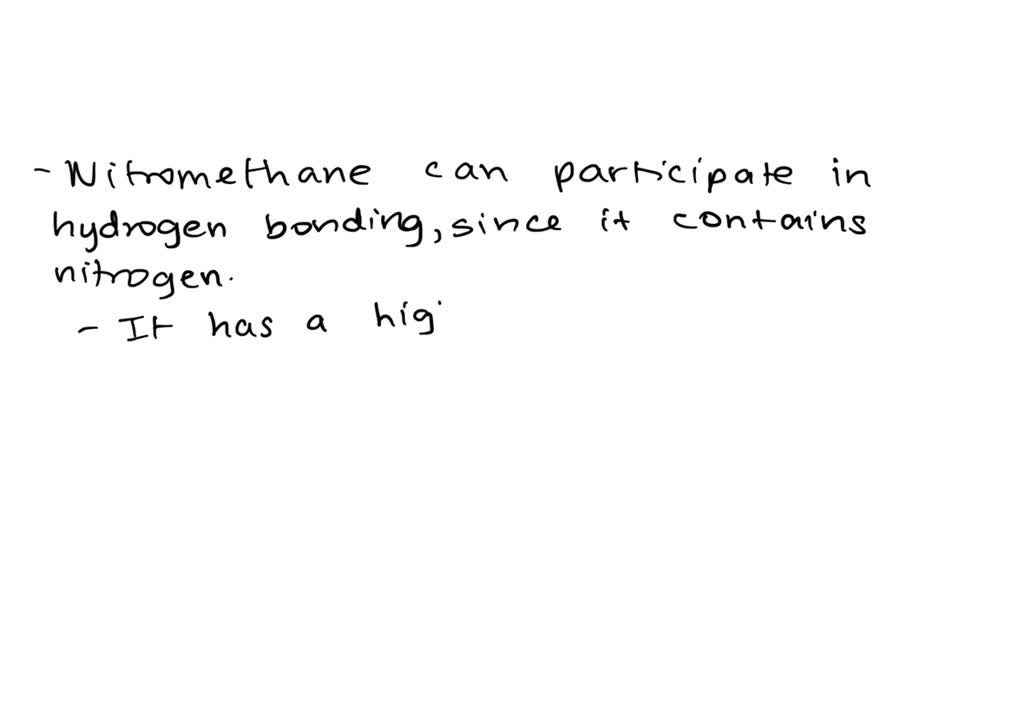 - Nitromethane can participate in
hydrogen bonding, since it contains
nitrogen.
- It has a hig